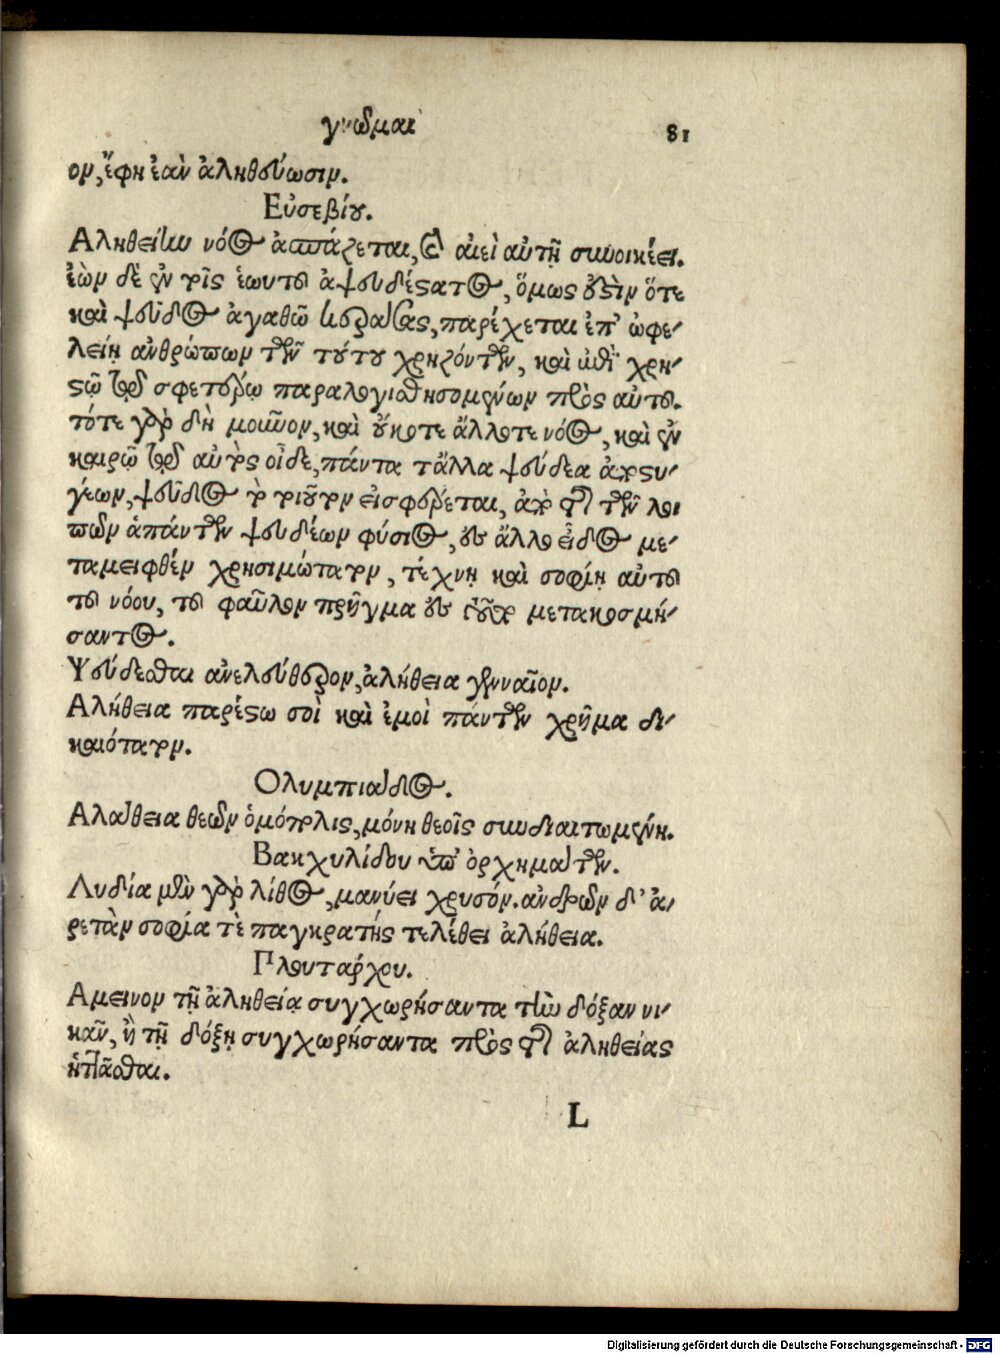 γνῶμαι 81
ον, ἔφη ἐὰν ἀληθεύωσιν.
Εὐσεβίου.
Αληθείην νόος ἀσπάζεται, καὶ αἰεὶ αὐτῇ συνοικέει.
ἐὼν δὲ ἐν τοῖς ἑωυτοῦ ἀψευδέστατος, ὅμως ἔστιν ὅτε
καὶ ψεῦδος ἀγαθῶ κεράσας, παρέχεται ἐπ' ὠφε-
λείῃ ἀνθρώπων τῶν τούτου χρηζόντων, καὶ ἐπὶ χρη-
στῷ τῷ σφετέρῳ παραλογισθησομένων πρὸς αὐτοῦ.
τότε γὰρ δὴ μοῦνον, καὶ οὔκοτε ἄλλοτε νόος, καὶ ἐν
καιρῶ τῷ αὐτὸς οἶδε, πάντα τἄλλα ψεύδεα ἀποστυ-
γέων, ψεῦδος τὸ τοιοῦτον εἰσφέρεται, ἀπὸ τῆς τῶν λοι
πῶν ἁπάντων ψευδέων φύσιος, ἐς ἄλλο εἶδος με-
ταμειφθὲν χρησιμώτατον, τέχνῃ καὶ σοφίῃ αὐτοῦ
τοῦ νόου, τοῦ φαῦλον πρῆγμα ἐς εὖ μετακοσμή-
σαντος.
Ψεύδεσθαι ἀνελεύθερον, ἀλήθεια γενναῖον.
Αλήθεια παρέστω σοὶ καὶ ἐμοὶ πάντων χρῆμα δι-
καιότατον.
Ολυμπιάδος.
Αλάθεια θεῶν ὁμόπολις, μόνη θεοῖς συνδιαιτωμένη.
Βακχυλίδου ὑπορχημάτων.
Λυδία μὲν γὰρ λίθος, μανύει χρυσόν. ἀνδρῶν δ' ἀ-
ρετὰν σοφία τὲ παγκρατής τελέθει ἀλήθεια.
Πλουτάρχου.
Αμεινον τῇ ἀληθείᾳ συγχωρήσαντα τὴν δόξαν νι-
κᾶν, ἢ τῇ δόξῃ συγχωρήσαντα πρὸς τῆς ἀληθείας
ἡττᾶσθαι.
L
Digitalisierung gefördert durch die Deutsche Forschungsgemeinschaft - DFG